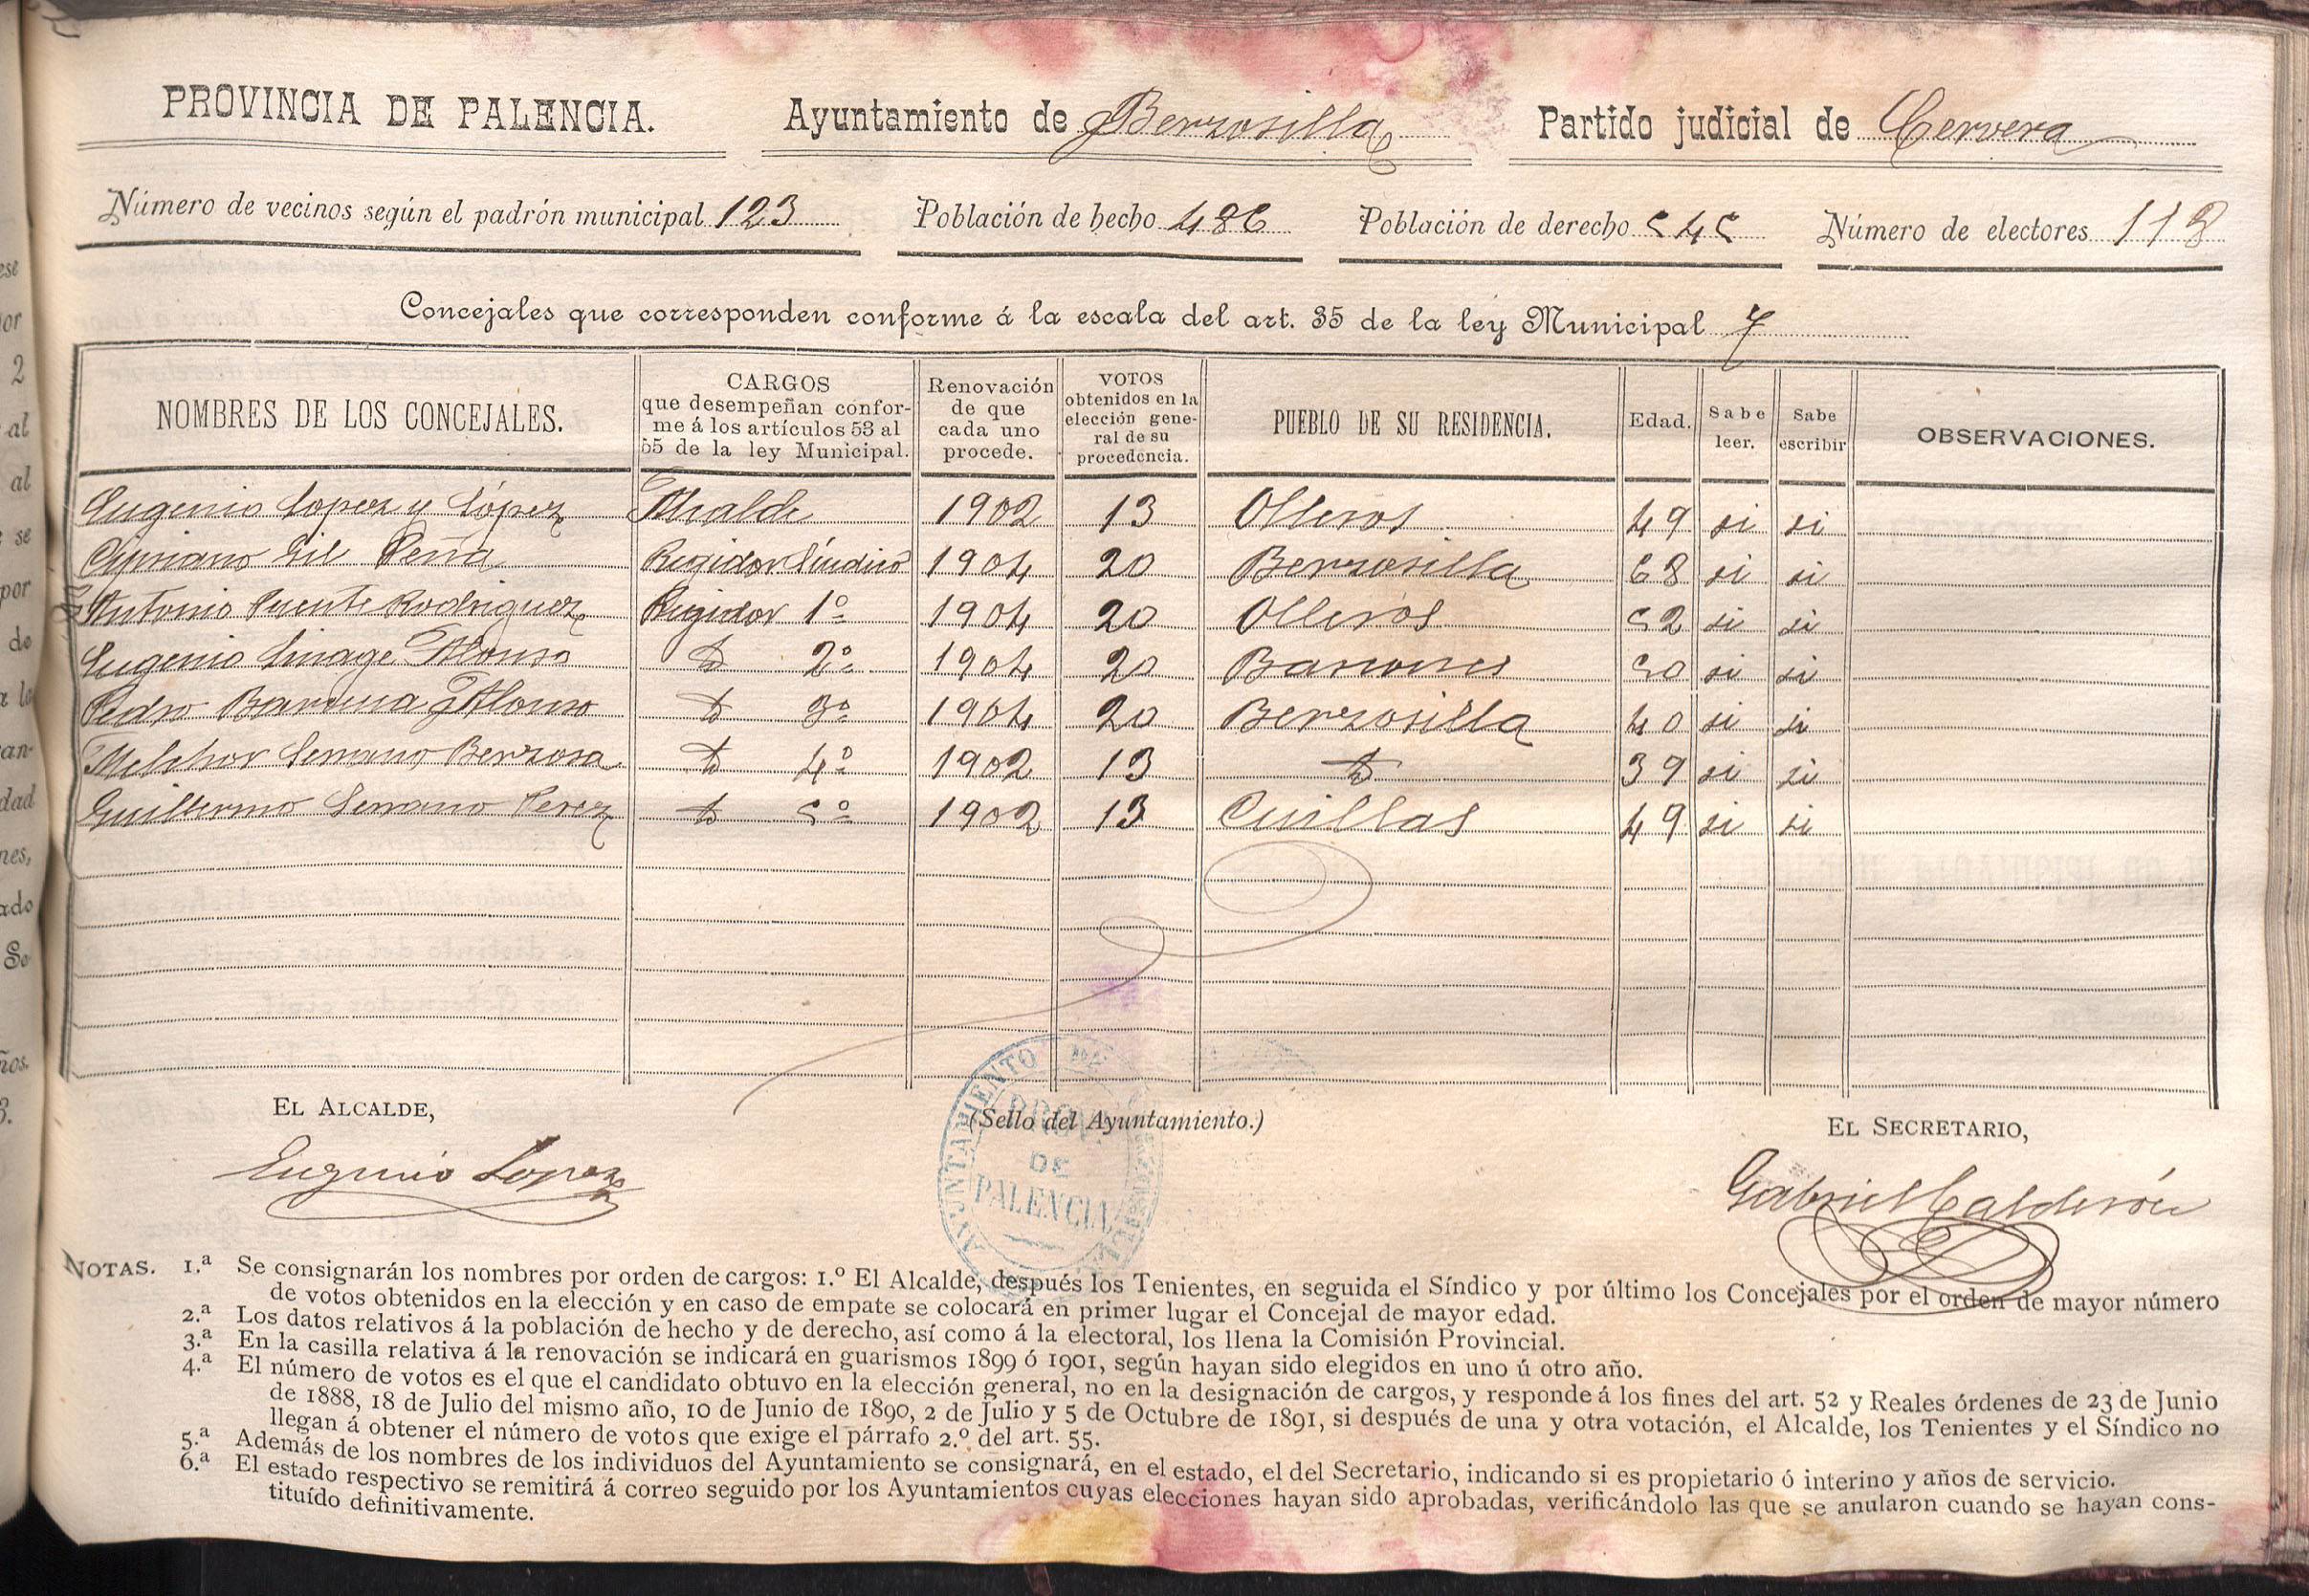 PROVINCIA DE PALENCIA. Ayuntamiento de Berzosilla Partido judicial de Cervera
Número de vecinos según el padrón municipal 123 Población de hecho 486 Población de derecho 545 Número de electores 118
Concejales que corresponden conforme á la escala del art. 35 de la ley Municipal 7
NOMBRES DE LOS CONCEJALES. CARGOS que desempeñan conforme á los artículos 53 al 55 de la ley Municipal. Renovación de que cada uno procede. VOTOS obtenidos en la elección general de su procedencia. PUEBLO DE SU RESIDENCIA. Edad. Sabe leer. Sabe escribir OBSERVACIONES.
Eugenio Lopez y López Alcalde 1902 13 Olleros 49 si si
Cipriano Gil Peña Regidor Síndico 1904 20 Berzosilla 68 si si
Antonio Puente Rodriguez Regidor 1º 1904 20 Olleros 52 si si
Eugenio Alonso D 2º 1904 20 Báscones 50 si si
Pedro Barcena Alonso D 3º 1904 20 Berzosilla 40 si si
Melchor Serrano Berzosa D 4º 1902 13 D 39 si si
Guillermo Serrano Perez D 5º 1902 13 Cuillas 49 si si
EL ALCALDE, (Sello del Ayuntamiento.) EL SECRETARIO,
Eugenio Lopez Gabriel Calderón
AYUNTAMIENTO DE
PROVª
DE
PALENCIA
NOTAS. 1.ª Se consignarán los nombres por orden de cargos: 1.º El Alcalde, después los Tenientes, en seguida el Síndico y por último los Concejales por el orden de mayor número
de votos obtenidos en la elección y en caso de empate se colocará en primer lugar el Concejal de mayor edad.
2.ª Los datos relativos á la población de hecho y de derecho, así como á la electoral, los llena la Comisión Provincial.
3.ª En la casilla relativa á la renovación se indicará en guarismos 1899 ó 1901, según hayan sido elegidos en uno ú otro año.
4.ª El número de votos es el que el candidato obtuvo en la elección general, no en la designación de cargos, y responde á los fines del art. 52 y Reales órdenes de 23 de Junio
de 1888, 18 de Julio del mismo año, 10 de Junio de 1890, 2 de Julio y 5 de Octubre de 1891, si después de una y otra votación, el Alcalde, los Tenientes y el Síndico no
llegan á obtener el número de votos que exige el párrafo 2.º del art. 55.
5.ª Además de los nombres de los individuos del Ayuntamiento se consignará, en el estado, el del Secretario, indicando si es propietario ó interino y años de servicio.
6.ª El estado respectivo se remitirá á correo seguido por los Ayuntamientos cuyas elecciones hayan sido aprobadas, verificándolo las que se anularon cuando se hayan cons-
tituído definitivamente.